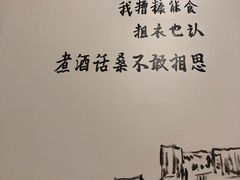 我糟糠能食
粗衣也认
煮酒话桑不敢相思